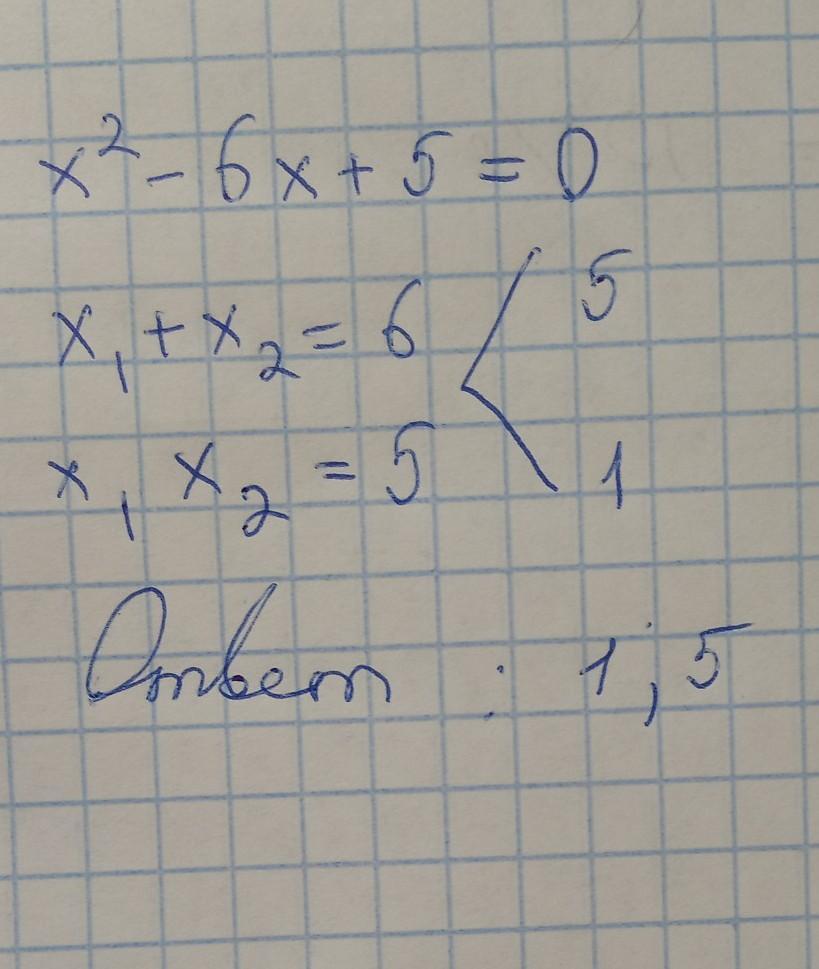 x² - 6x + 5 = 0
x₁ + x₂ = 6 < 5
x₁ x₂ = 5 1
Ответ : 1, 5